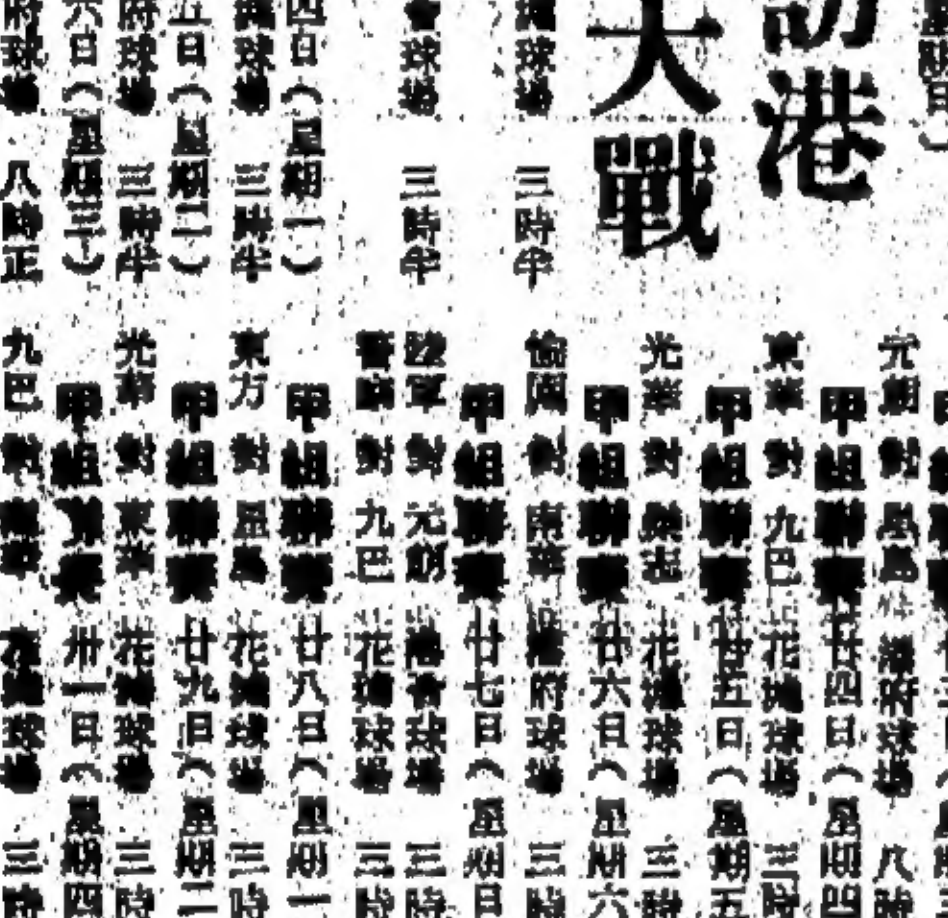 星期日）
訪港
大戰
球場 三時半
會球場 三時半
四日（星期一）
球場 三時半
五日（星期二）
府球場 三時半
六日（星期三）
府球場 八時正
元朗 對 星島 港府球場 八時
甲組聯賽 廿四日（星期四
東華 對 九巴 花墟球場 三時
甲組聯賽 廿五日（星期五
光華 對 傑志 花墟球場 三時
甲組聯賽 廿六日（星期六
愉園 對 南華 港府球場 三時
甲組聯賽 廿七日（星期日
陸軍 對 元朗 港會球場 三時
警察 對 九巴 花墟球場 三時
甲組聯賽 廿八日（星期一
東方 對 星島 花墟球場 三時
甲組聯賽 廿九日（星期二
光華 對 東華 花墟球場 三時
甲組聯賽 卅一日（星期四
九巴 對 花墟球場 三時